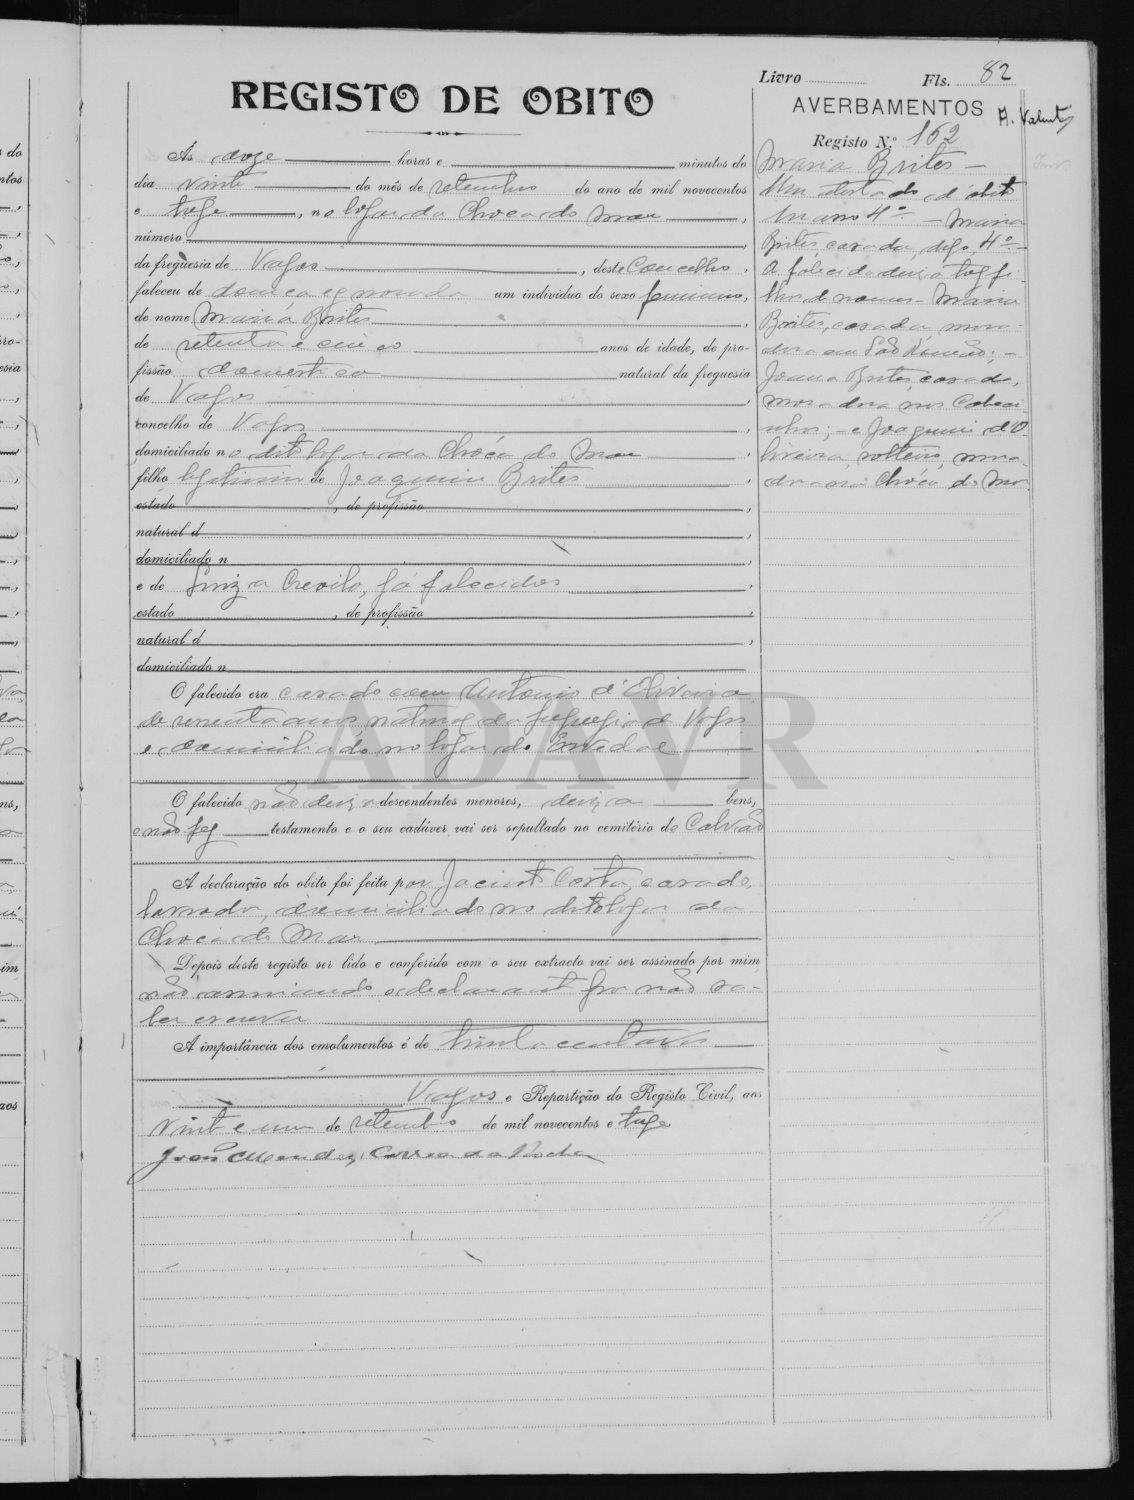 Livro Fls. 82
REGISTO DE OBITO
AVERBAMENTOS
A. Valente
Registo N.º 162
Ás doze horas e minutos do
dia vinte do mês de setembro do ano de mil novecentos
e treze, no logar da Chóca do Mar,
número
da freguesia de Vagos, deste Concelho,
faleceu de doença ignorada um individuo do sexo feminino,
de nome Maria Brites,
de setenta e cinco anos de idade, de pro-
fissão domestica natural da freguesia
de Vagos,
concelho de Vagos,
domiciliado no dito logar da Chóca do Mar,
filho legitimo de Joaquim Brites,
estado, de profissão,
natural d,
domiciliado n
e de Luiza, já falecidos,
estado, de profissão,
natural d,
domiciliado n
O falecido era casado com Antonio d'Oliveira
de sessenta anos, natural da freguesia de Vagos
e domiciliado no logar do
O falecido não deixa descendentes menores, deixa bens,
e não fez testamento e o seu cadáver vai ser sepultado no cemitério de Calvão
A declaração do obito foi feita por Jacinto Costa, casado,
lavrador, domiciliado no dito logar da
Chóca do Mar
Depois deste registo ser lido e conferido com o seu extracto vai ser assinado por mim
não assinando o declarante por não sa-
ber escrever
A importância dos emolumentos é de trinta centavos
Vagos e Repartição do Registo Civil, aos
vinte e um de setembro de mil novecentos e treze
João Mendes Correa da Rocha
Maria Brites -
Um atestado d'obito
Maria
Brites, casada, digo,
A falecida deixa tres fi-
lhos de nomes - Maria
Brites, casada, mora-
dora em São Romão; -
Joana Brites, casada,
moradora nos Cabeci-
nhos; - e Joaquim d'O-
liveira, solteiro, mora-
dor na Chóca do Mar
ADAVR